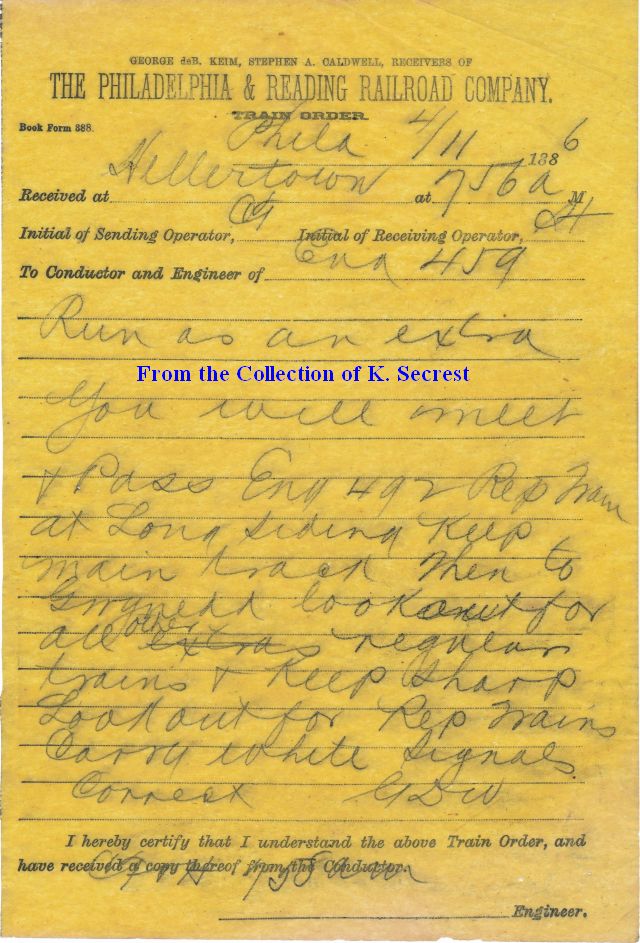 GEORGE deB. KEIM, STEPHEN A. CALDWELL, RECEIVERS OF
THE PHILADELPHIA & READING RAILROAD COMPANY.
TRAIN ORDER.
Book Form 388.
Phila 4/11 1886
Received at Hellertown at 756 a M
Initial of Sending Operator, Initial of Receiving Operator,
To Conductor and Engineer of Eng 459
Run as an extra
From the Collection of K. Secrest
You will meet
& Pass Eng 492 Rep Train
at Long Siding Keep
main track then to
Gwynedd look out for
all other extras regular
trains & Keep Sharp
Look out for Rep Trains
Carry White Signals
Correct GDW
I hereby certify that I understand the above Train Order, and
have received a copy thereof from the Conductor.
Engineer.